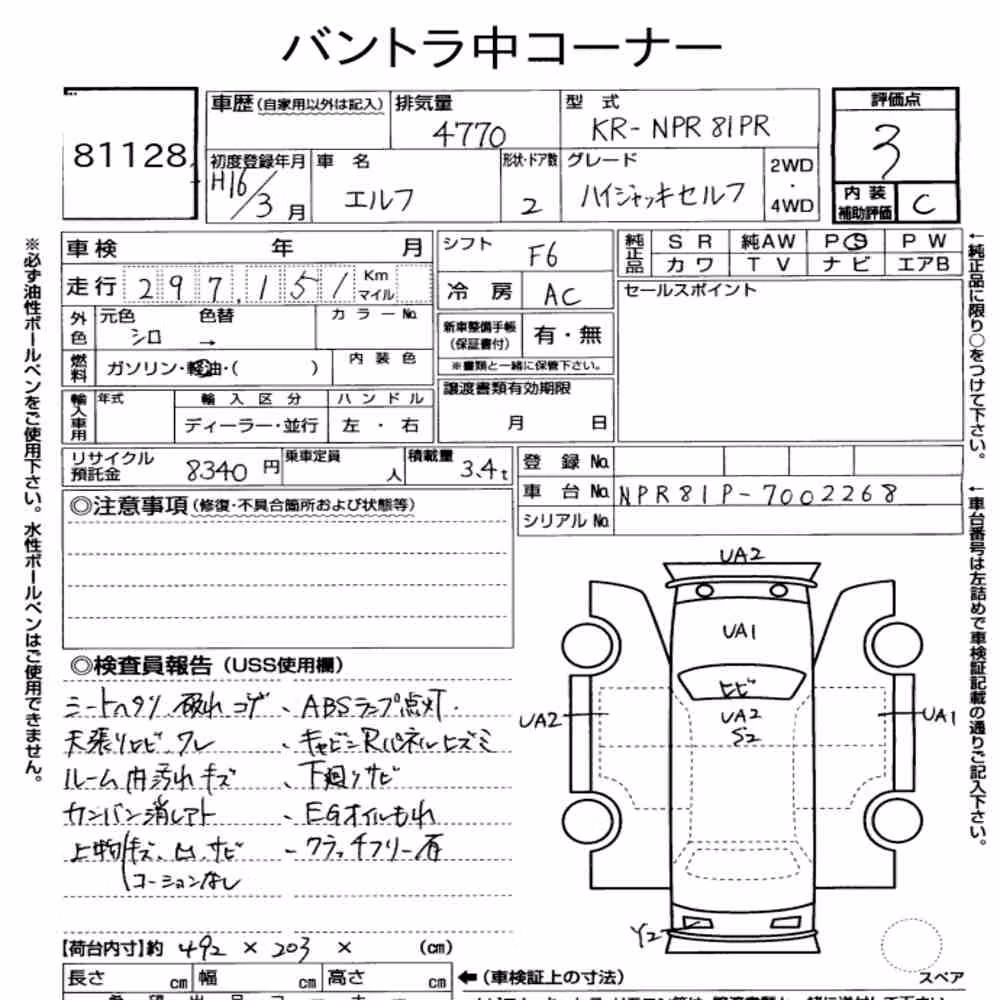 バントラ中コーナー
81128
車歴(自家用以外は記入)
排気量
4770
型 式
KR-NPR81PR
評価点
3
初度登録年月
H16/3月
車 名
エルフ
形状・ドア数
2
グレード
ハイジャッキセルフ
2WD
・
4WD
内 装
補助評価
C
車検 年 月
シフト
F6
純正品
SR 純AW PS PW
カワ TV ナビ エアB
走行 297,151 Km
マイル
冷 房
AC
セールスポイント
外色
元色 色替
シロ →
カラーNo.
新車整備手帳
(保証書付)
有・無
※書類と一緒に保管下さい。
燃料
ガソリン・軽油・( )
内装色
譲渡書類有効期限
月 日
輸入車用
年式
輸入区分
ハンドル
ディーラー・並行
左・右
リサイクル
預託金
8340 円
乗車定員
人
積載量
3.4t
登録No.
車台No.
NPR81P-7002268
シリアルNo.
◎注意事項(修復・不具合箇所および状態等)
◎検査員報告(USS使用欄)
シートヘタリ、破れ、コゲ、ABSランプ点灯.
天張りヒビ、ワレ 、キャビンRパネルヒズミ
ルーム内汚れキズ 、下廻りサビ
カンバン消しアト 、EGオイルもれ
上物/キズ、凹、サビ 、クラッチフリー有
コーションなし
UA2
UA1
ヒビ
UA2
S2
UA2
UA1
Y2
スペア
【荷台内寸】約 492 × 203 × (cm)
長さ cm 幅 cm 高さ cm
←(車検証上の寸法)
※必ず油性ボールペンをご使用下さい。水性ボールペンはご使用できません。
←純正品に限り○をつけて下さい。
←車台番号は左詰めで車検証記載の通りご記入下さい。